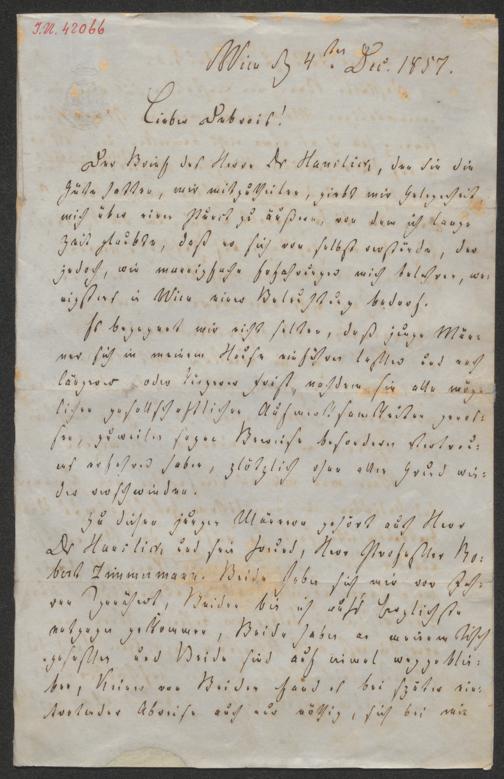 J.N. 42066
Wien d 4ten Dec. 1857.
Lieber Debrois!
Der Brief des Herrn Dr Hanslick, den Sie die
Güte hatten, mir mitzutheilen, giebt mir Gelegenheit,
mich über einen Punct zu äußern, von dem ich lange
Zeit glaubte, daß er sich von selbst verstünde, der
jedoch, wie mannigfache Erfahrungen mich belehren, we-
nigstens in Wien einer Beleuchtung bedarf.
Es begegnet mir nicht selten, daß junge Män-
ner sich in meinem Hause einführen lassen und nach
längerer oder kürzerer Frist, nachdem sie alle mög-
lichen gesellschaftlichen Aufmerksamkeiten genos-
sen, zuweilen sogar Beweise besondern Vertrau-
ens erfahren haben, plötzlich ohne allen Grund wie-
der verschwinden.
Zu diesen jungen Männern gehört auch Herr
Dr Hanslick und sein Freund, Herr Professor Ro-
bert Zimmermann. Beide haben sich mir vor Jah-
ren genähert, Beiden bin ich aufs herzlichste
entgegen gekommen, Beide haben an meinem Tisch
gesessen und Beide sind auf einmal weggeblie-
ben, Keiner von Beiden fand es bei später ein-
tretender Abreise auch nur nöthig, sich bei mir